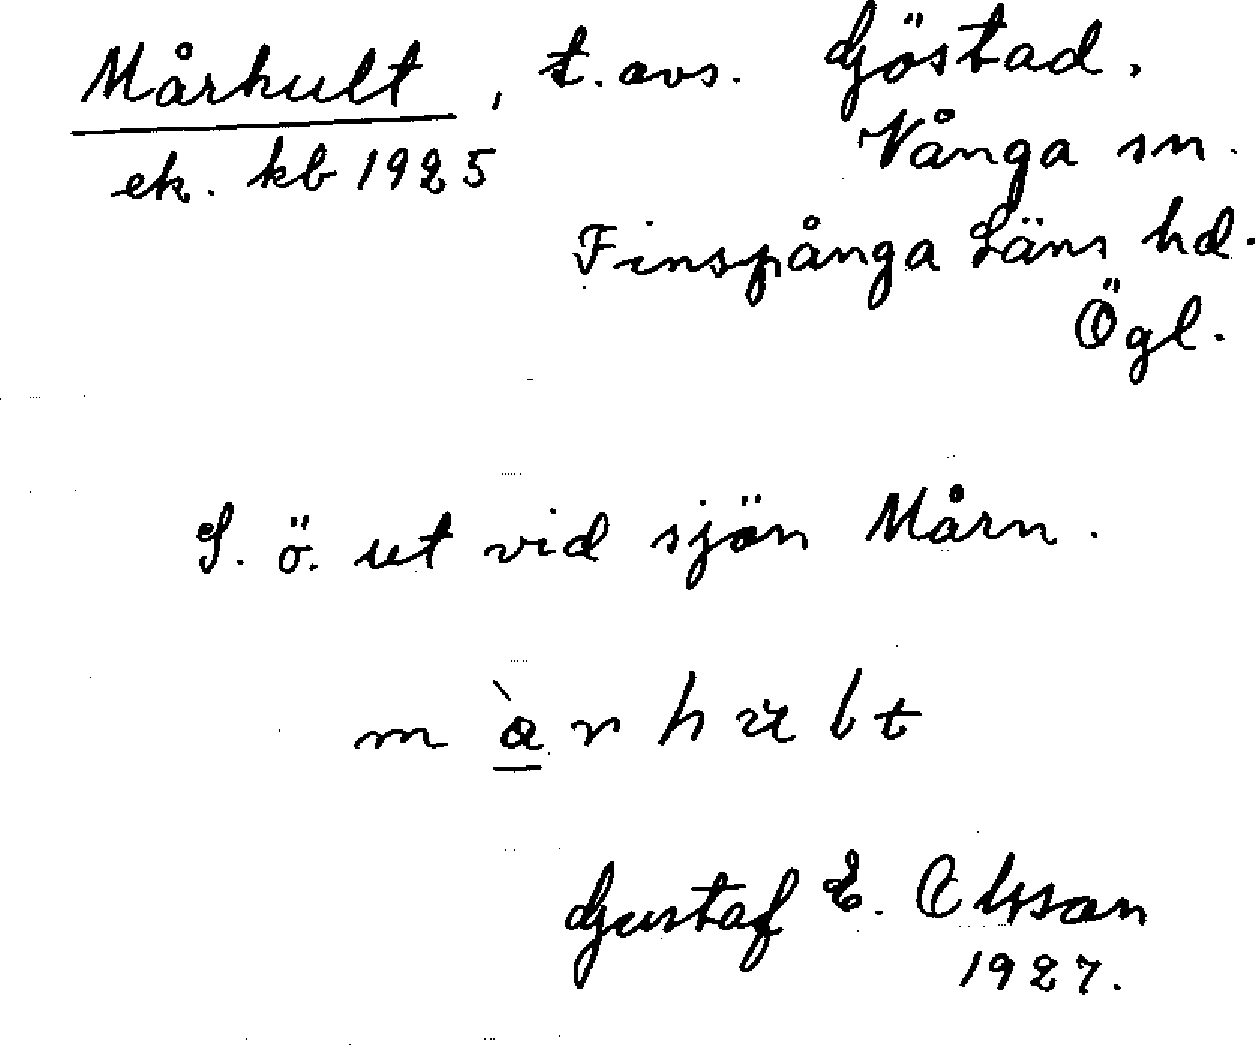 Mårhult, t. avs. Göstad,
ek. kb 1925 Vånga sn.
Finspånga Läns hd.
Ögl.
S. ö. ut vid sjön Mårn.
m à r h u l t
Gustaf E. Olsson
1927.